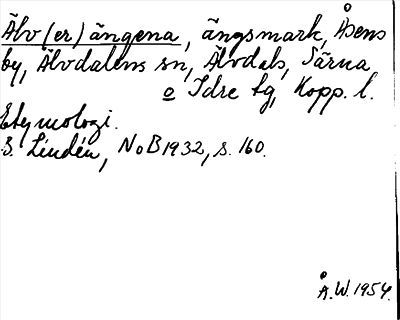 Älv(er)ängena, ängsmark, Åsens
by, Älvdalens sn, Älvdals, Särna
o Idre tg, Kopp. l.
Etymologi.
B. Lindén, NoB 1932, s. 160.
Å.W. 1954.